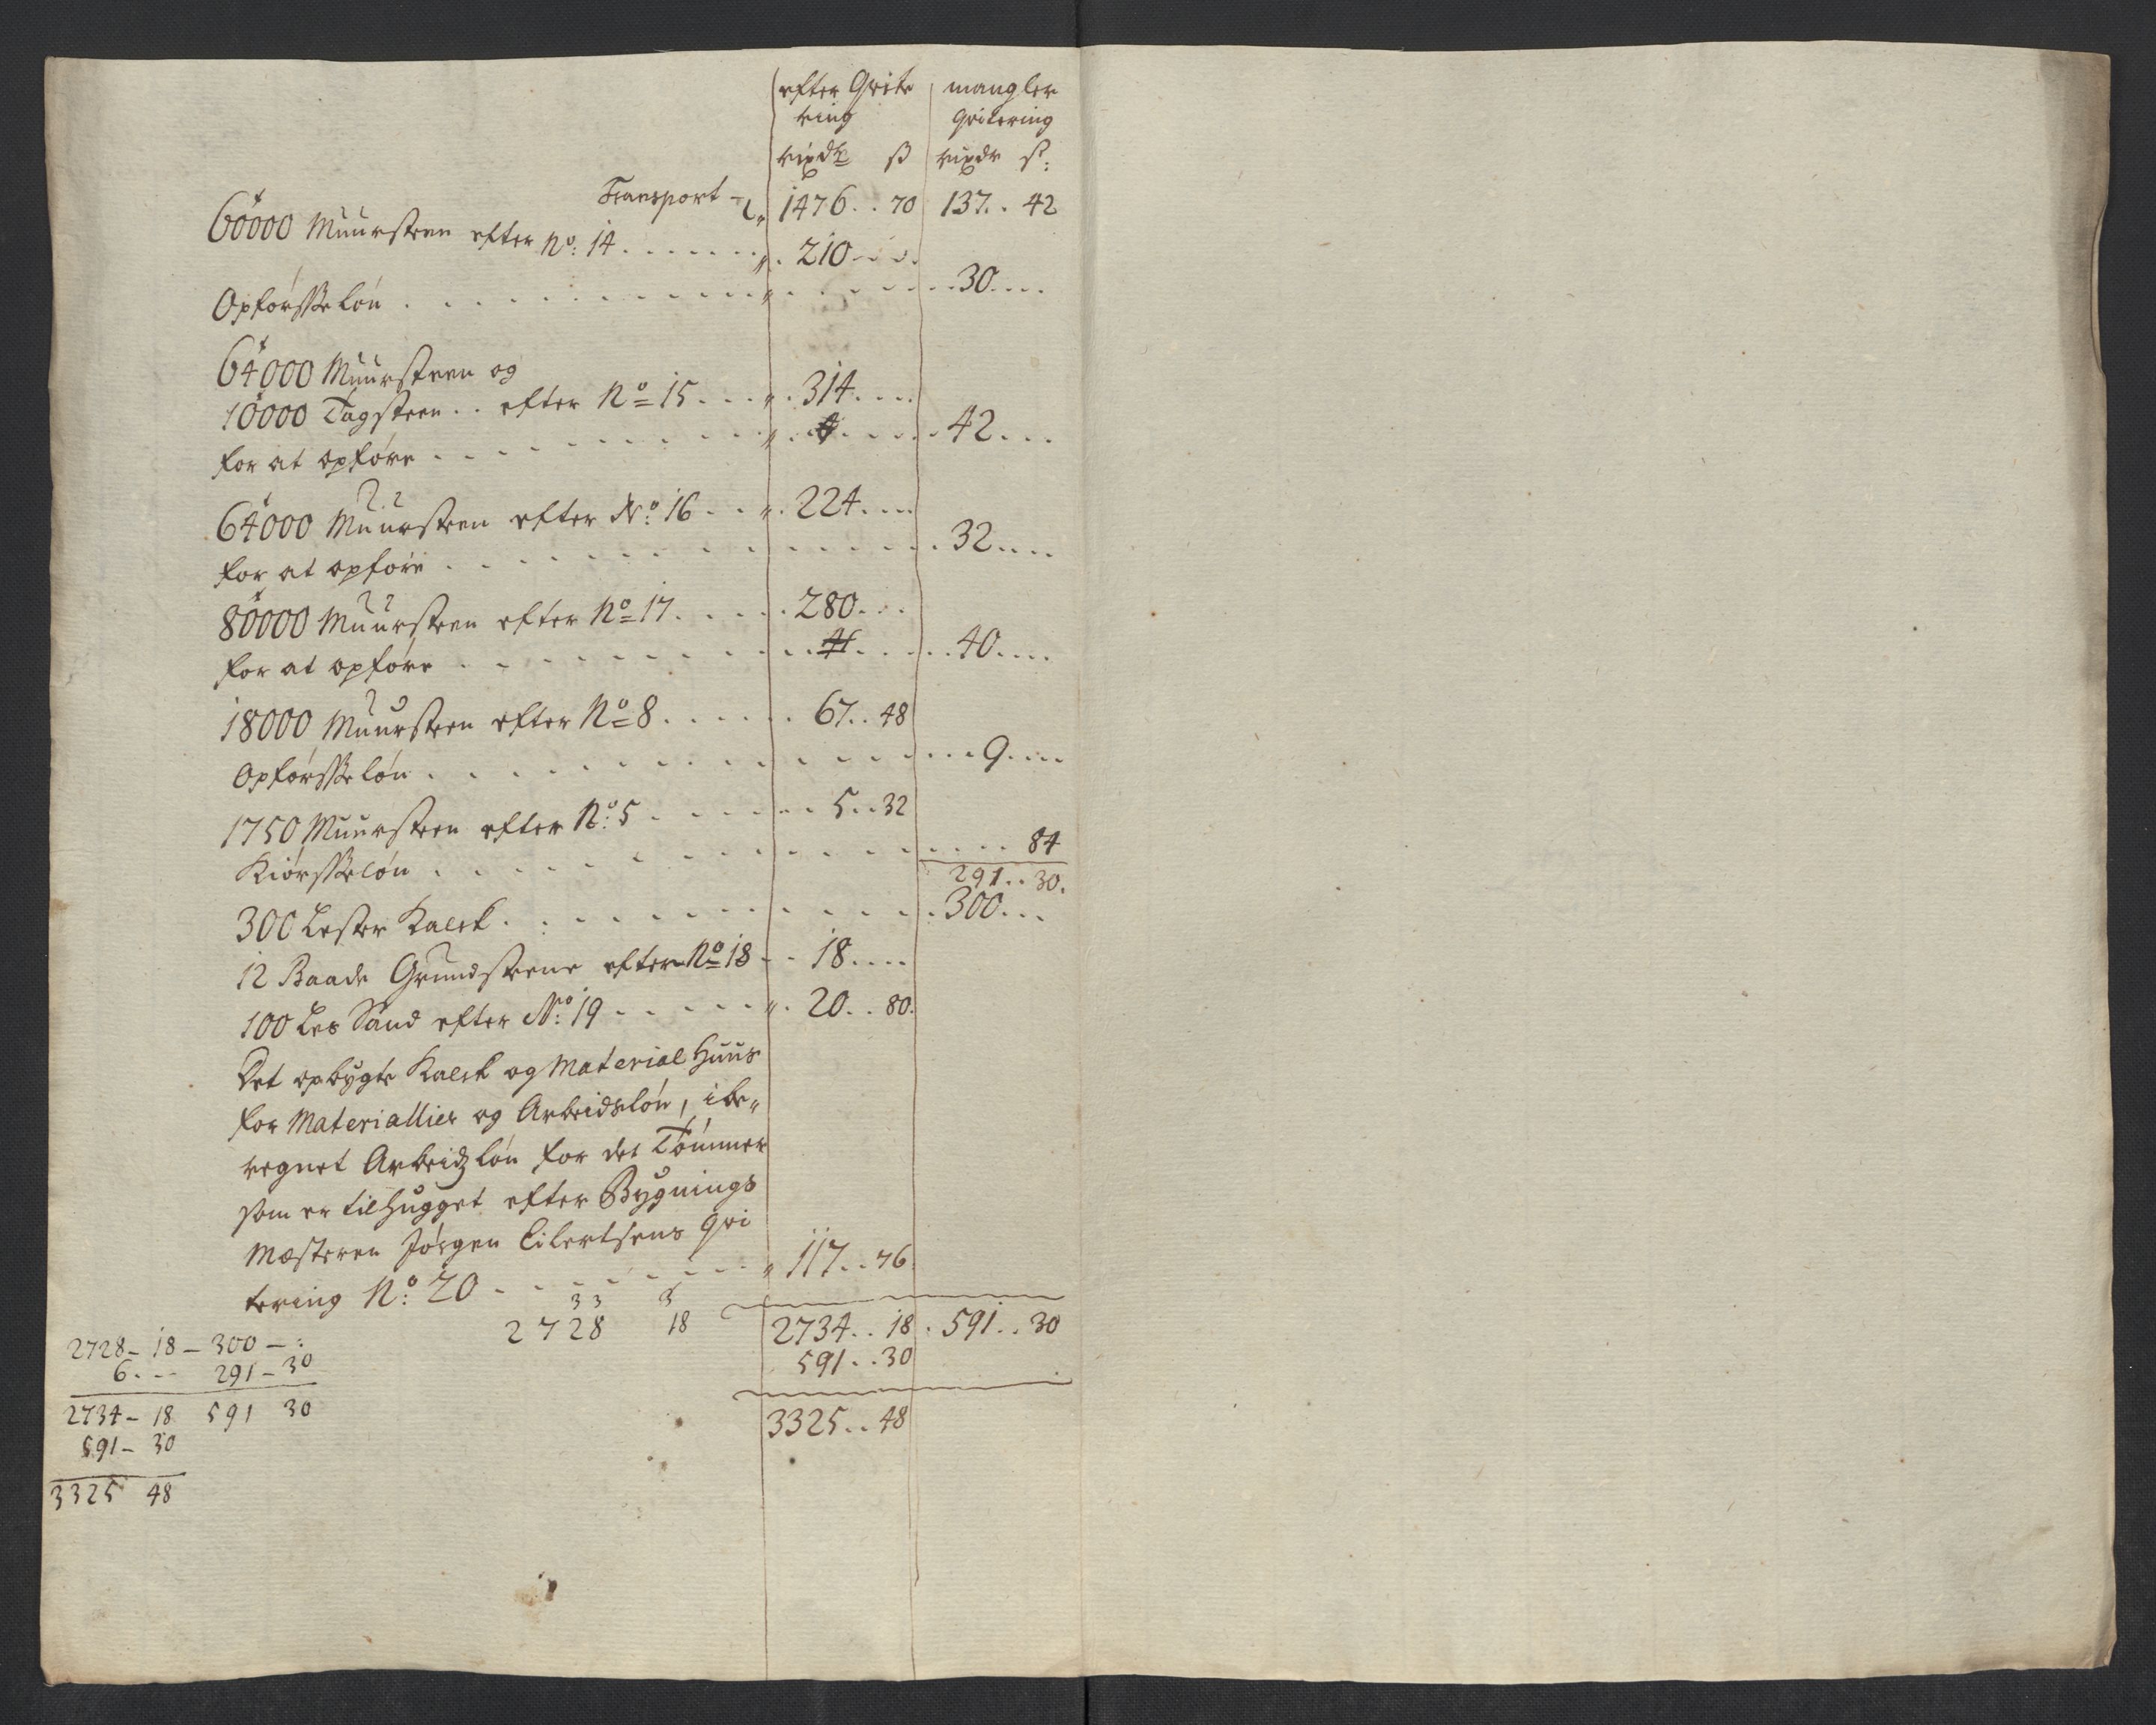 efter Qvite mangler
ring Qvitering
rixdr ß rixdr ß:
Transport - 1476.. 70 137.. 42
60000 Muursteen efter No: 14 . . . . . . . 210 . . .
Opförsseløn . . . . . . . . . . 30 . . . .
64000 Muursteen og
10000 Tagsteen . . efter No 15 . . . 314 . . . .
for at opföre . . . . . . . . . 42 . . .
64000 Muursteen efter No: 16 . . . 224 . . . .
for at opföre . . . . . . . . . 32 . . . .
80000 Muursteen efter No 17 . . . . . 280 . . .
for at opföre . . . . . . . . . 40 . . . .
18000 Muursteen efter No 8 . . . . . . 67.. 48
Opförsseløn . . . . . . . . . . 9 . . . .
1750 Muursteen efter No: 5 . . . . . . 5.. 32
Kiörsseløn . . . . . . . . . . 84
291.. 30.
300 Lester Kalck . . . . . . . . . . 300 . . .
12 Baade Grundsteene efter No 18 - . 18 . . . .
100 Les Sand efter No: 19 - - - - - . 20.. 80.
Det opbygte Kalck og Material Huus
for Materiallier og Arbeidsløn, ibe„
regnet Arbeidzløn for det Tömmer
som er tilhugget efter Bygnings
Mæsteren Jörgen Eilertsens Qvi
tering No: 20 - - - - - - - 117.. 76
33 5
2728 18
2734.. 18 . 591.. 30
591.. 30
3325.. 48
2728 - 18 - 300 - :
6. - - 291 - 30
2734 - 18 591 30
591 - 30
3325 48